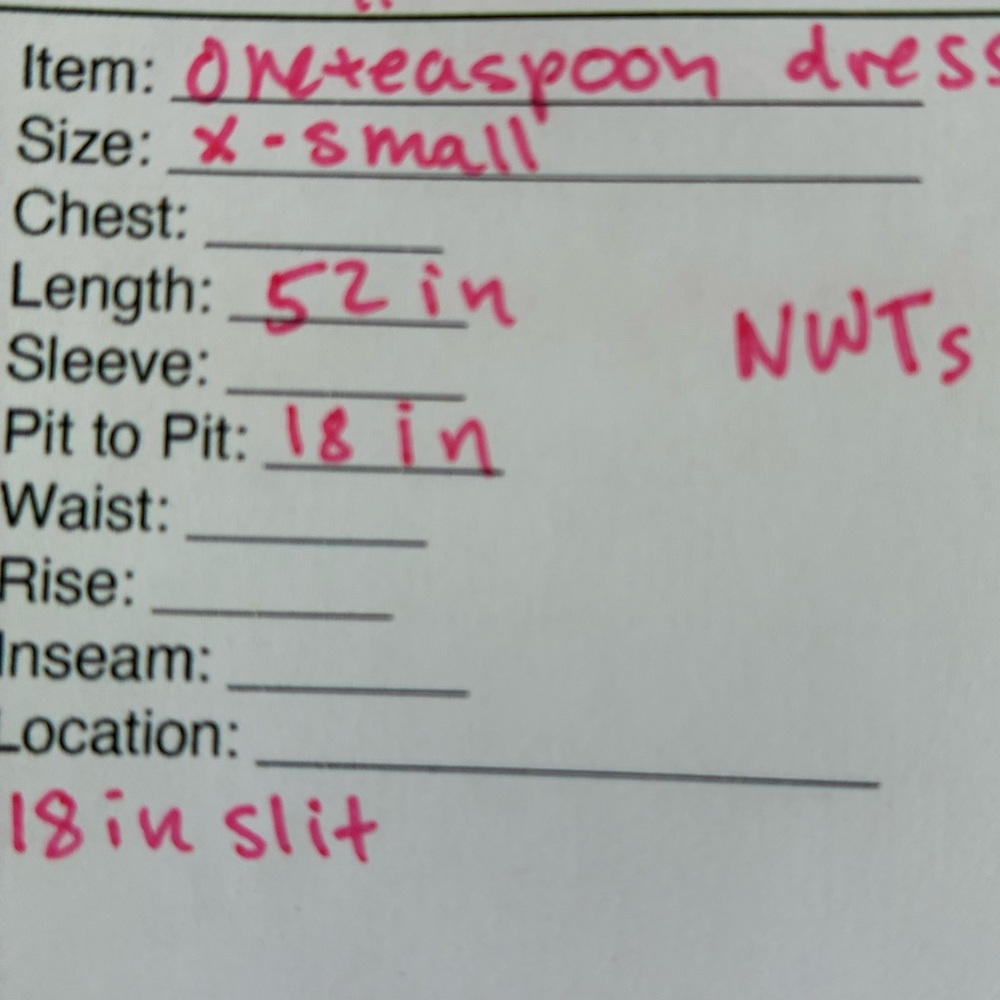 Item: Oneteaspoon dress
Size: x-small
Chest:
Length: 52 in
NWTs
Sleeve:
Pit to Pit: 18 in
Waist:
Rise:
Inseam:
Location:
18 in slit